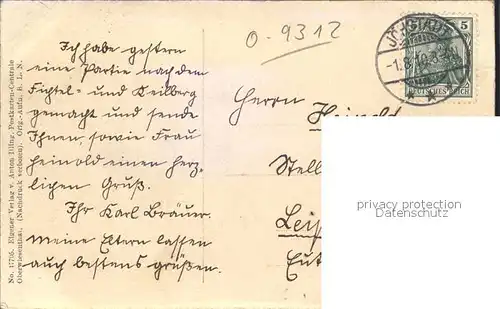 O-9312
Ich habe gestern
eine Partie nach dem
Fichtel- und Keilberg
gemacht und sende
Ihnen, sowie Frau
Heinold einen herz-
lichen Gruß.
Ihr Karl Bräuer.
meine Eltern lassen
auch bestens grüßen.
No. 17795. Eigener Verlag v. Anton Jilling, Postkarten-Centrale
Oberwiesenthal. (Nachdruck verboten). Orig.-Aufn. B. L. N.
JÖHSTADT
5
DEUTSCHES REICH
Herrn Heinold
Stell
Leip
Eut
privacy protection
Datenschutz